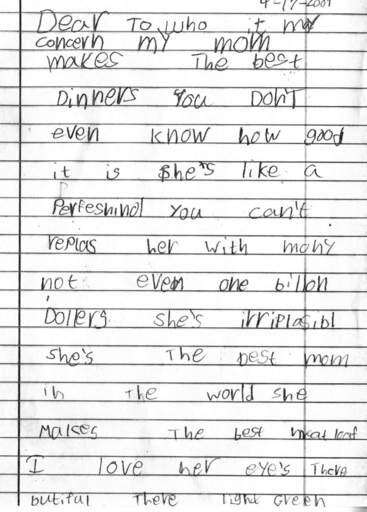 4-17-2001
Dear To who it my
concern my mom
makes The best
Dinners You Don'T
even know how good
it is she's like a
Perfeshinol you can't
replas her with mony
not even one billon
Dollers she's irriplasibl
she's The best mom
in The world she
Makes The best meat loaf
I love her eye's There
butiful There light Green